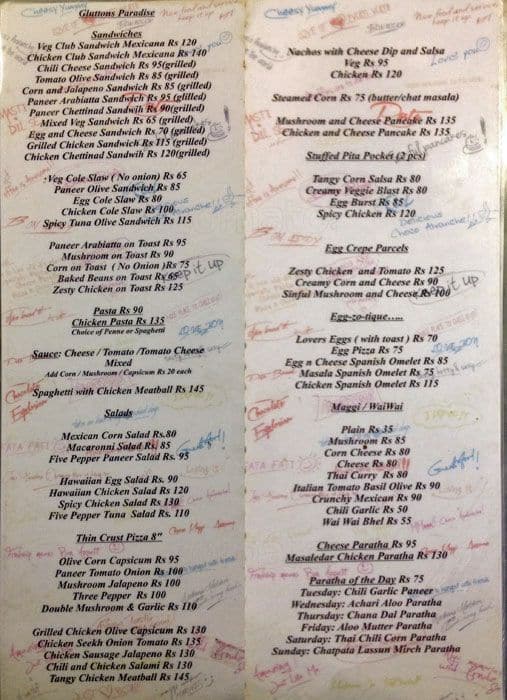 Gluttons Paradise
Sandwiches
Veg Club Sandwich Mexicana Rs 120
Chicken Club Sandwich Mexicana Rs 140
Chili Cheese Sandwich Rs 95(grilled)
Tomato Olive Sandwich Rs 85 (grilled)
Corn and Jalapeno Sandwich Rs 85 (grilled)
Paneer Arabiatta Sandwich Rs 95 (grilled)
Paneer Chettinad Sandwich Rs 90(grilled)
Mixed Veg Sandwich Rs 65 (grilled)
Egg and Cheese Sandwich Rs 70 (grilled)
Grilled Chicken Sandwich Rs 115 (grilled)
Chicken Chettinad Sandwih Rs 120(grilled)
Veg Cole Slaw ( No onion) Rs 65
Paneer Olive Sandwich Rs 85
Egg Cole Slaw Rs 80
Chicken Cole Slaw Rs 100
Spicy Tuna Olive Sandwich Rs 115
Paneer Arabiatta on Toast Rs 95
Mushroom on Toast Rs 90
Corn on Toast ( No Onion )Rs 75
Baked Beans on Toast Rs 65
Zesty Chicken on Toast Rs 125
Pasta Rs 90
Chicken Pasta Rs 135
Choice of Penne or Spaghetti
Sauce: Cheese / Tomato /Tomato Cheese
Mixed
Add Corn / Mushroom / Capsicum Rs 20 each
Spaghetti with Chicken Meatball Rs 145
Salads
Mexican Corn Salad Rs.80
Macaronni Salad Rs. 85
Five Pepper Paneer Salad Rs. 95
Hawaiian Egg Salad Rs. 90
Hawaiian Chicken Salad Rs 120
Spicy Chicken Salad Rs 130
Five Pepper Tuna Salad Rs. 110
Thin Crust Pizza 8"
Olive Corn Capsicum Rs 95
Paneer Tomato Onion Rs 100
Mushroom Jalapeno Rs 100
Three Pepper Rs 100
Double Mushroom & Garlic Rs 110
Grilled Chicken Olive Capsicum Rs 130
Chicken Seekh Onion Tomato Rs 135
Chicken Sausage Jalapeno Rs 130
Chili and Chicken Salami Rs 130
Tangy Chicken Meatball Rs 145
Cheesy Yummy
Nachos with Cheese Dip and Salsa
Veg Rs 95
Chicken Rs 120
Loves you
Steamed Corn Rs 75 (butter/chat masala)
Mushroom and Cheese Pancake Rs 135
Chicken and Cheese Pancake Rs 135
Stuffed Pita Pocket (2 pcs)
Tangy Corn Salsa Rs 80
Creamy Veggie Blast Rs 80
Egg Burst Rs 85
Spicy Chicken Rs 120
Delicious
Egg Crepe Parcels
Keep it up
Zesty Chicken and Tomato Rs 125
Creamy Corn and Cheese Rs 90
Sinful Mushroom and Cheese Rs 100
Egg-zo-tique.....
Lovers Eggs ( with toast ) Rs 70
Egg Pizza Rs 75
Egg n Cheese Spanish Omelet Rs 85
Masala Spanish Omelet Rs 75
Chicken Spanish Omelet Rs 115
Chocolate
Explosion
Maggi / WaiWai
Plain Rs 35
Mushroom Rs 85
Corn Cheese Rs 80
Cheese Rs 80
Thai Curry Rs 80
Italian Tomato Basil Olive Rs 90
Crunchy Mexican Rs 90
Chili Garlic Rs 50
Wai Wai Bhel Rs 55
Cheese Paratha Rs 95
Masaledar Chicken Paratha Rs 130
Paratha of the Day Rs 75
Tuesday: Chili Garlic Paneer
Wednesday: Achari Aloo Paratha
Thursday: Chana Dal Paratha
Friday: Aloo Mutter Paratha
Saturday: Thai Chili Corn Paratha
Sunday: Chatpata Lassun Mirch Paratha